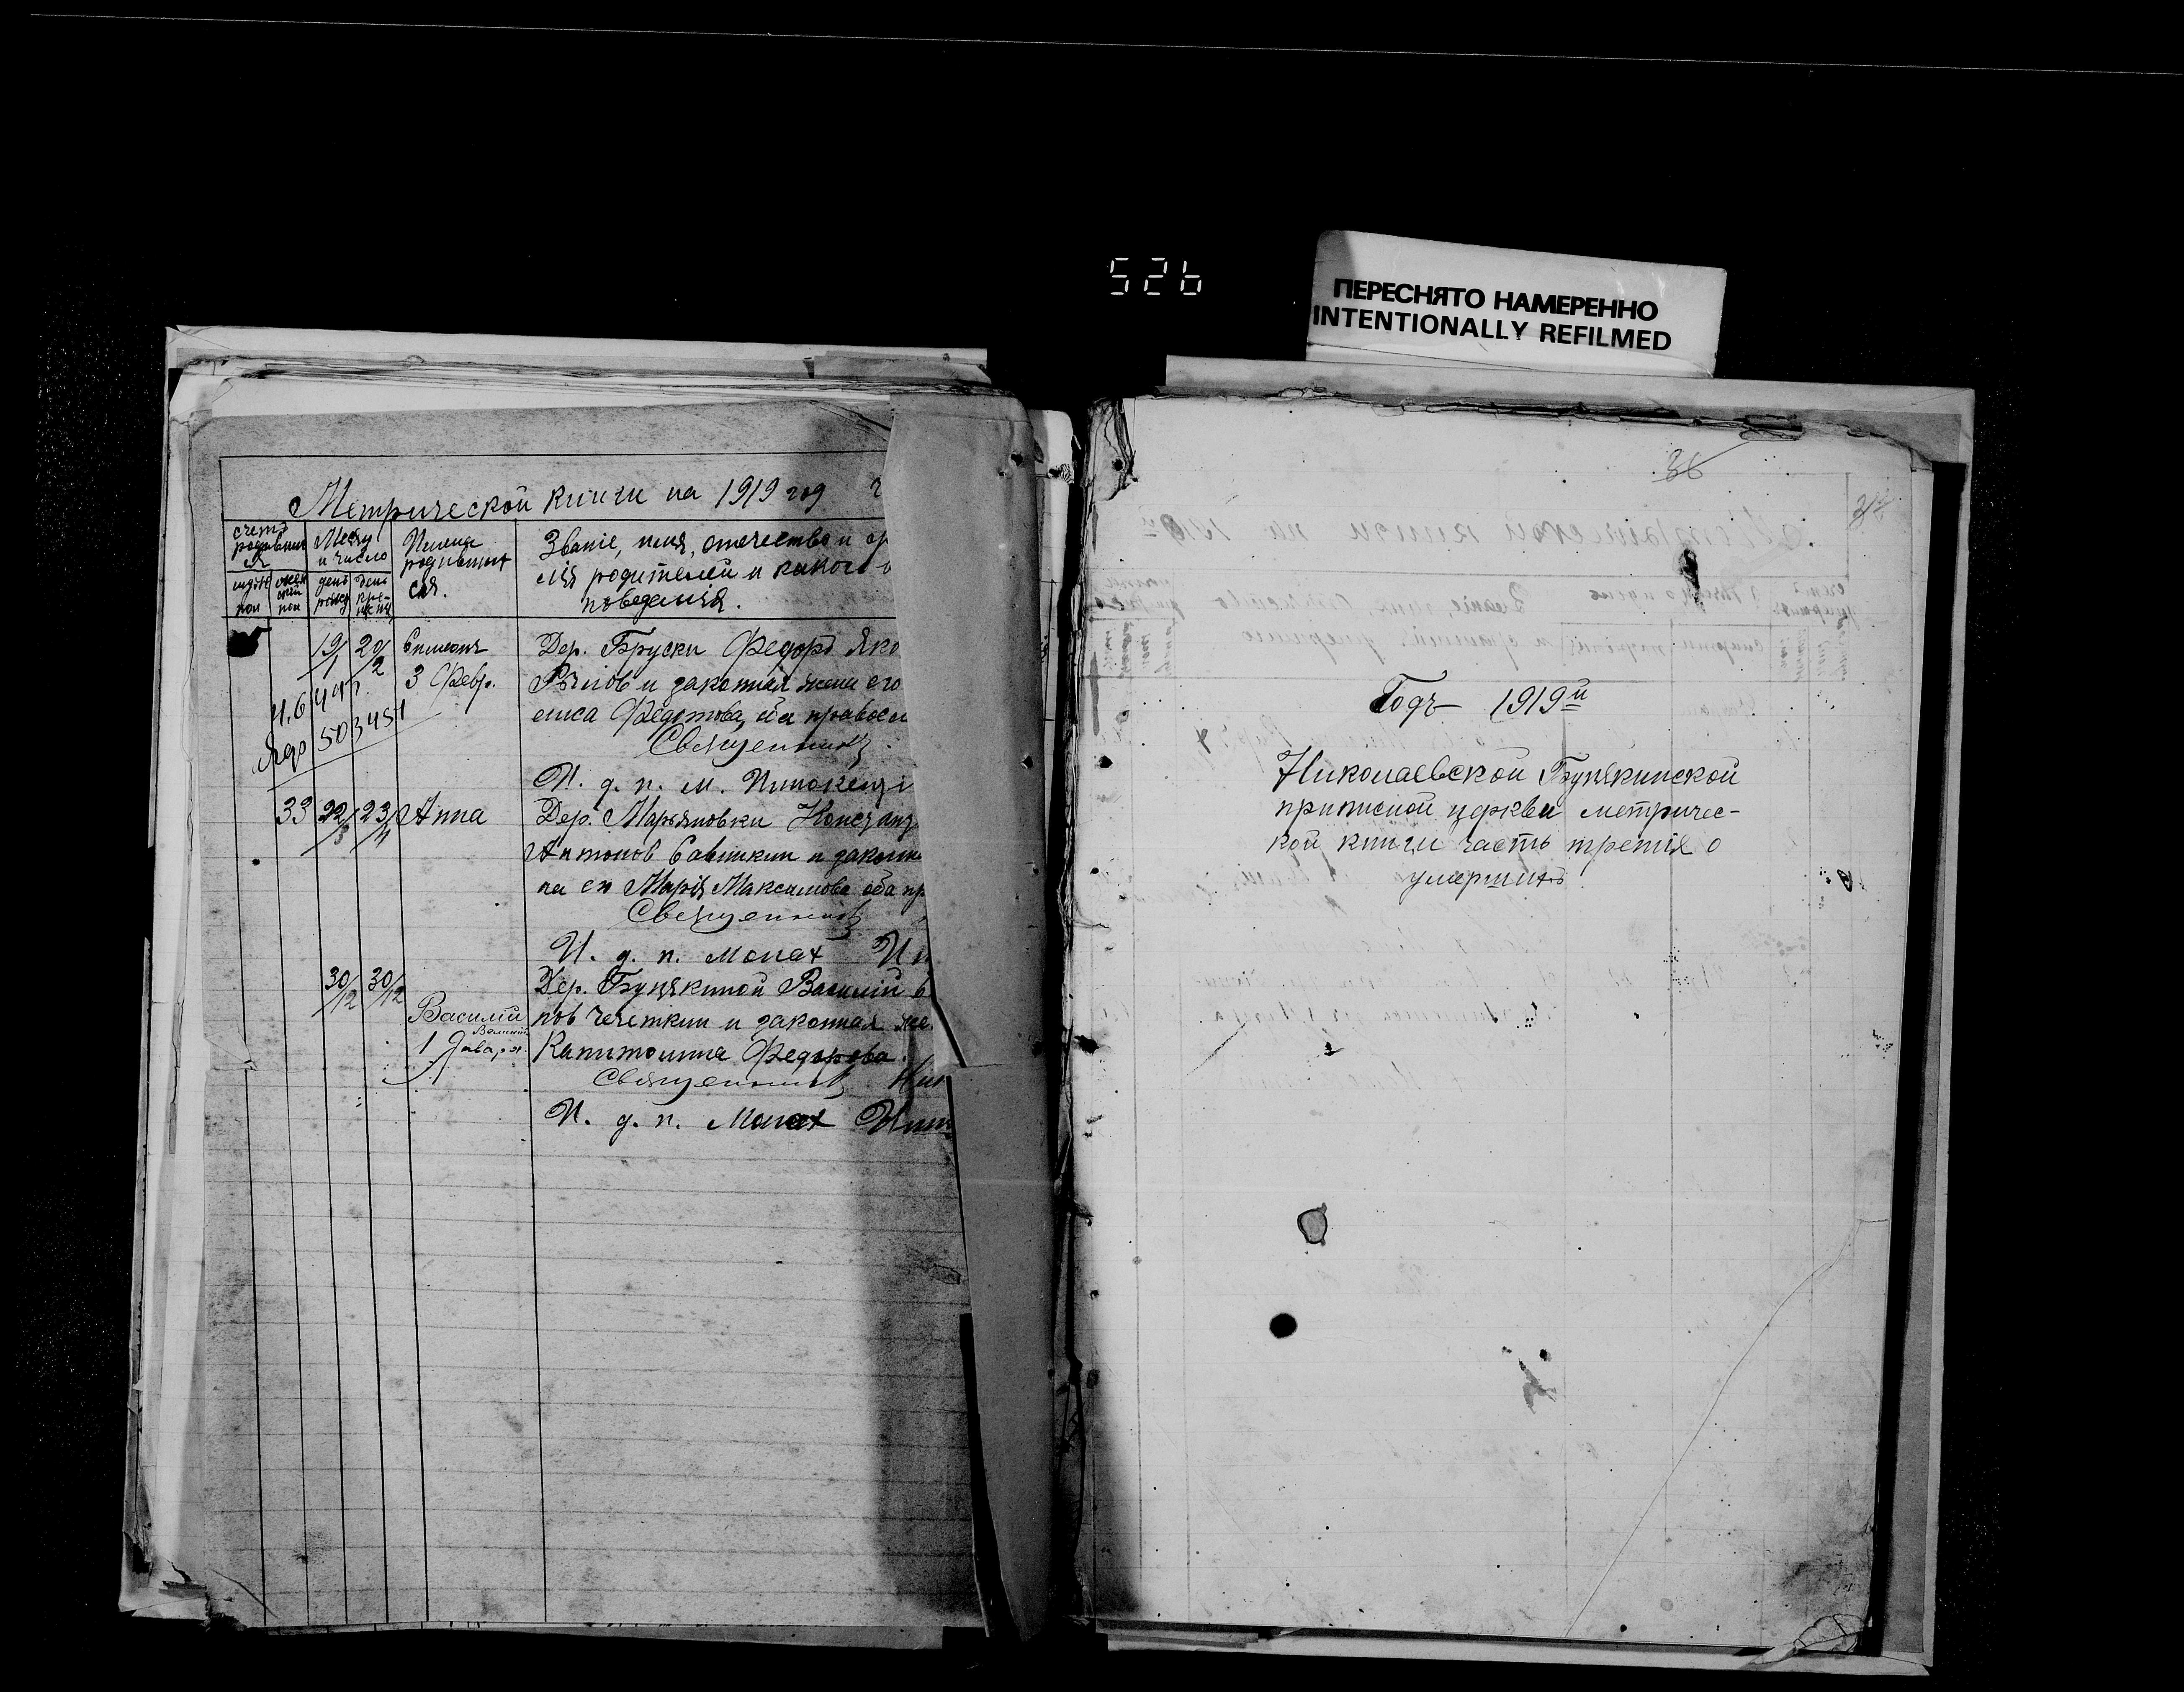 526
ПЕРЕСНЯТО НАМЕРЕННО
INTENTIONALLY REFILMED
Метрической книги на 1919 год
счетъ родивших ся
Месяц и число
Имена родивших ся.
Званіе, имя, отечество и
родителей и какого
поведанія.
день день
19/1 20/2 Симеонъ
3 Февр.
Дер. Бруски Федоръ Яко
и законная жена его
Федотова, оба правосл
Священникъ
И. д. п. м. Инокент
503451
33 22/3 23/4 Анна
Дер. Марьяновки Констант
Антонов Савинкин и законна
на ея Марія Максимова оба пр
Священникъ
И. д. п. монах Ин
30/12 30/12
Василій
Великій
1 Января
Дер. Бунякиной Василій
нов Чечеткин и законная же
Капитолина Федорова
Священникъ Ник
И. д. п. Монах Инн
36
Годъ 1919й
Николаевской Бунякинской
приписной церкви метричес-
кой книги часть третія о
умерших